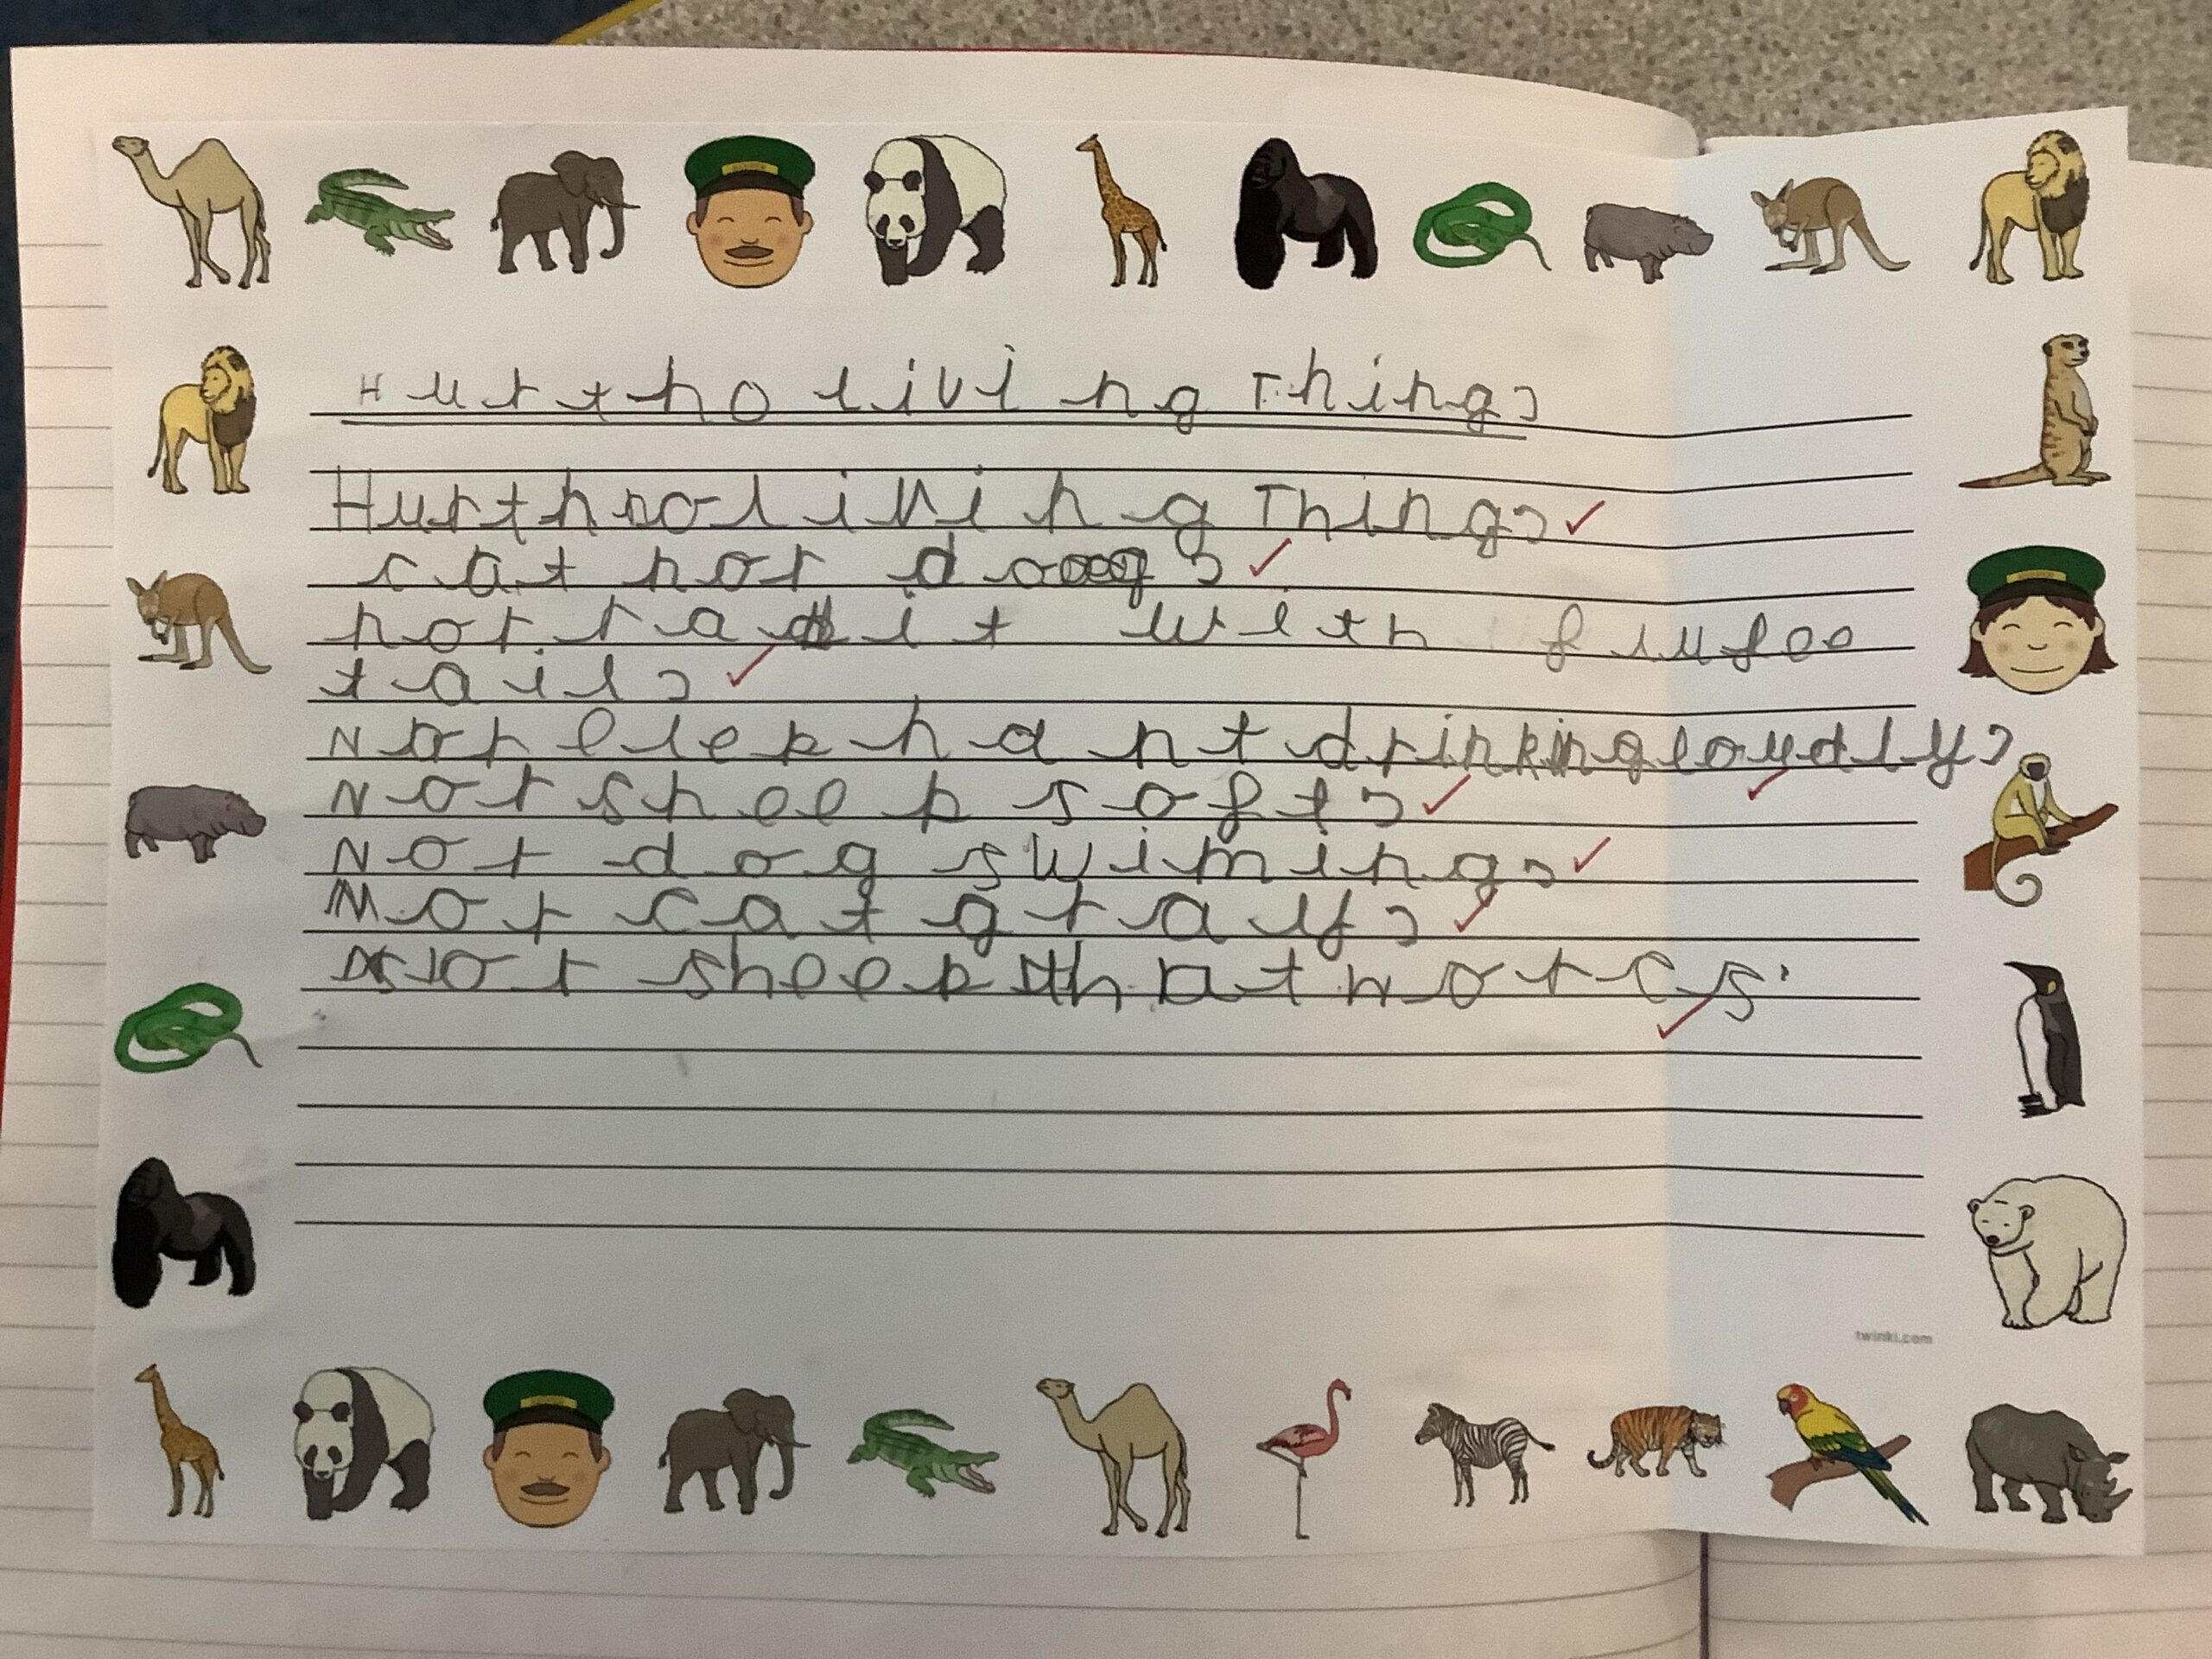 Hurt ho living Things
Hurt no living Things,
cat nor dog,
nor rabit with
tails,
Nor elephant drinking loudly,
Nor sheep soft,
Nor dog swiming,
Nor cat gray,
Nor sheep that
twinkl.com